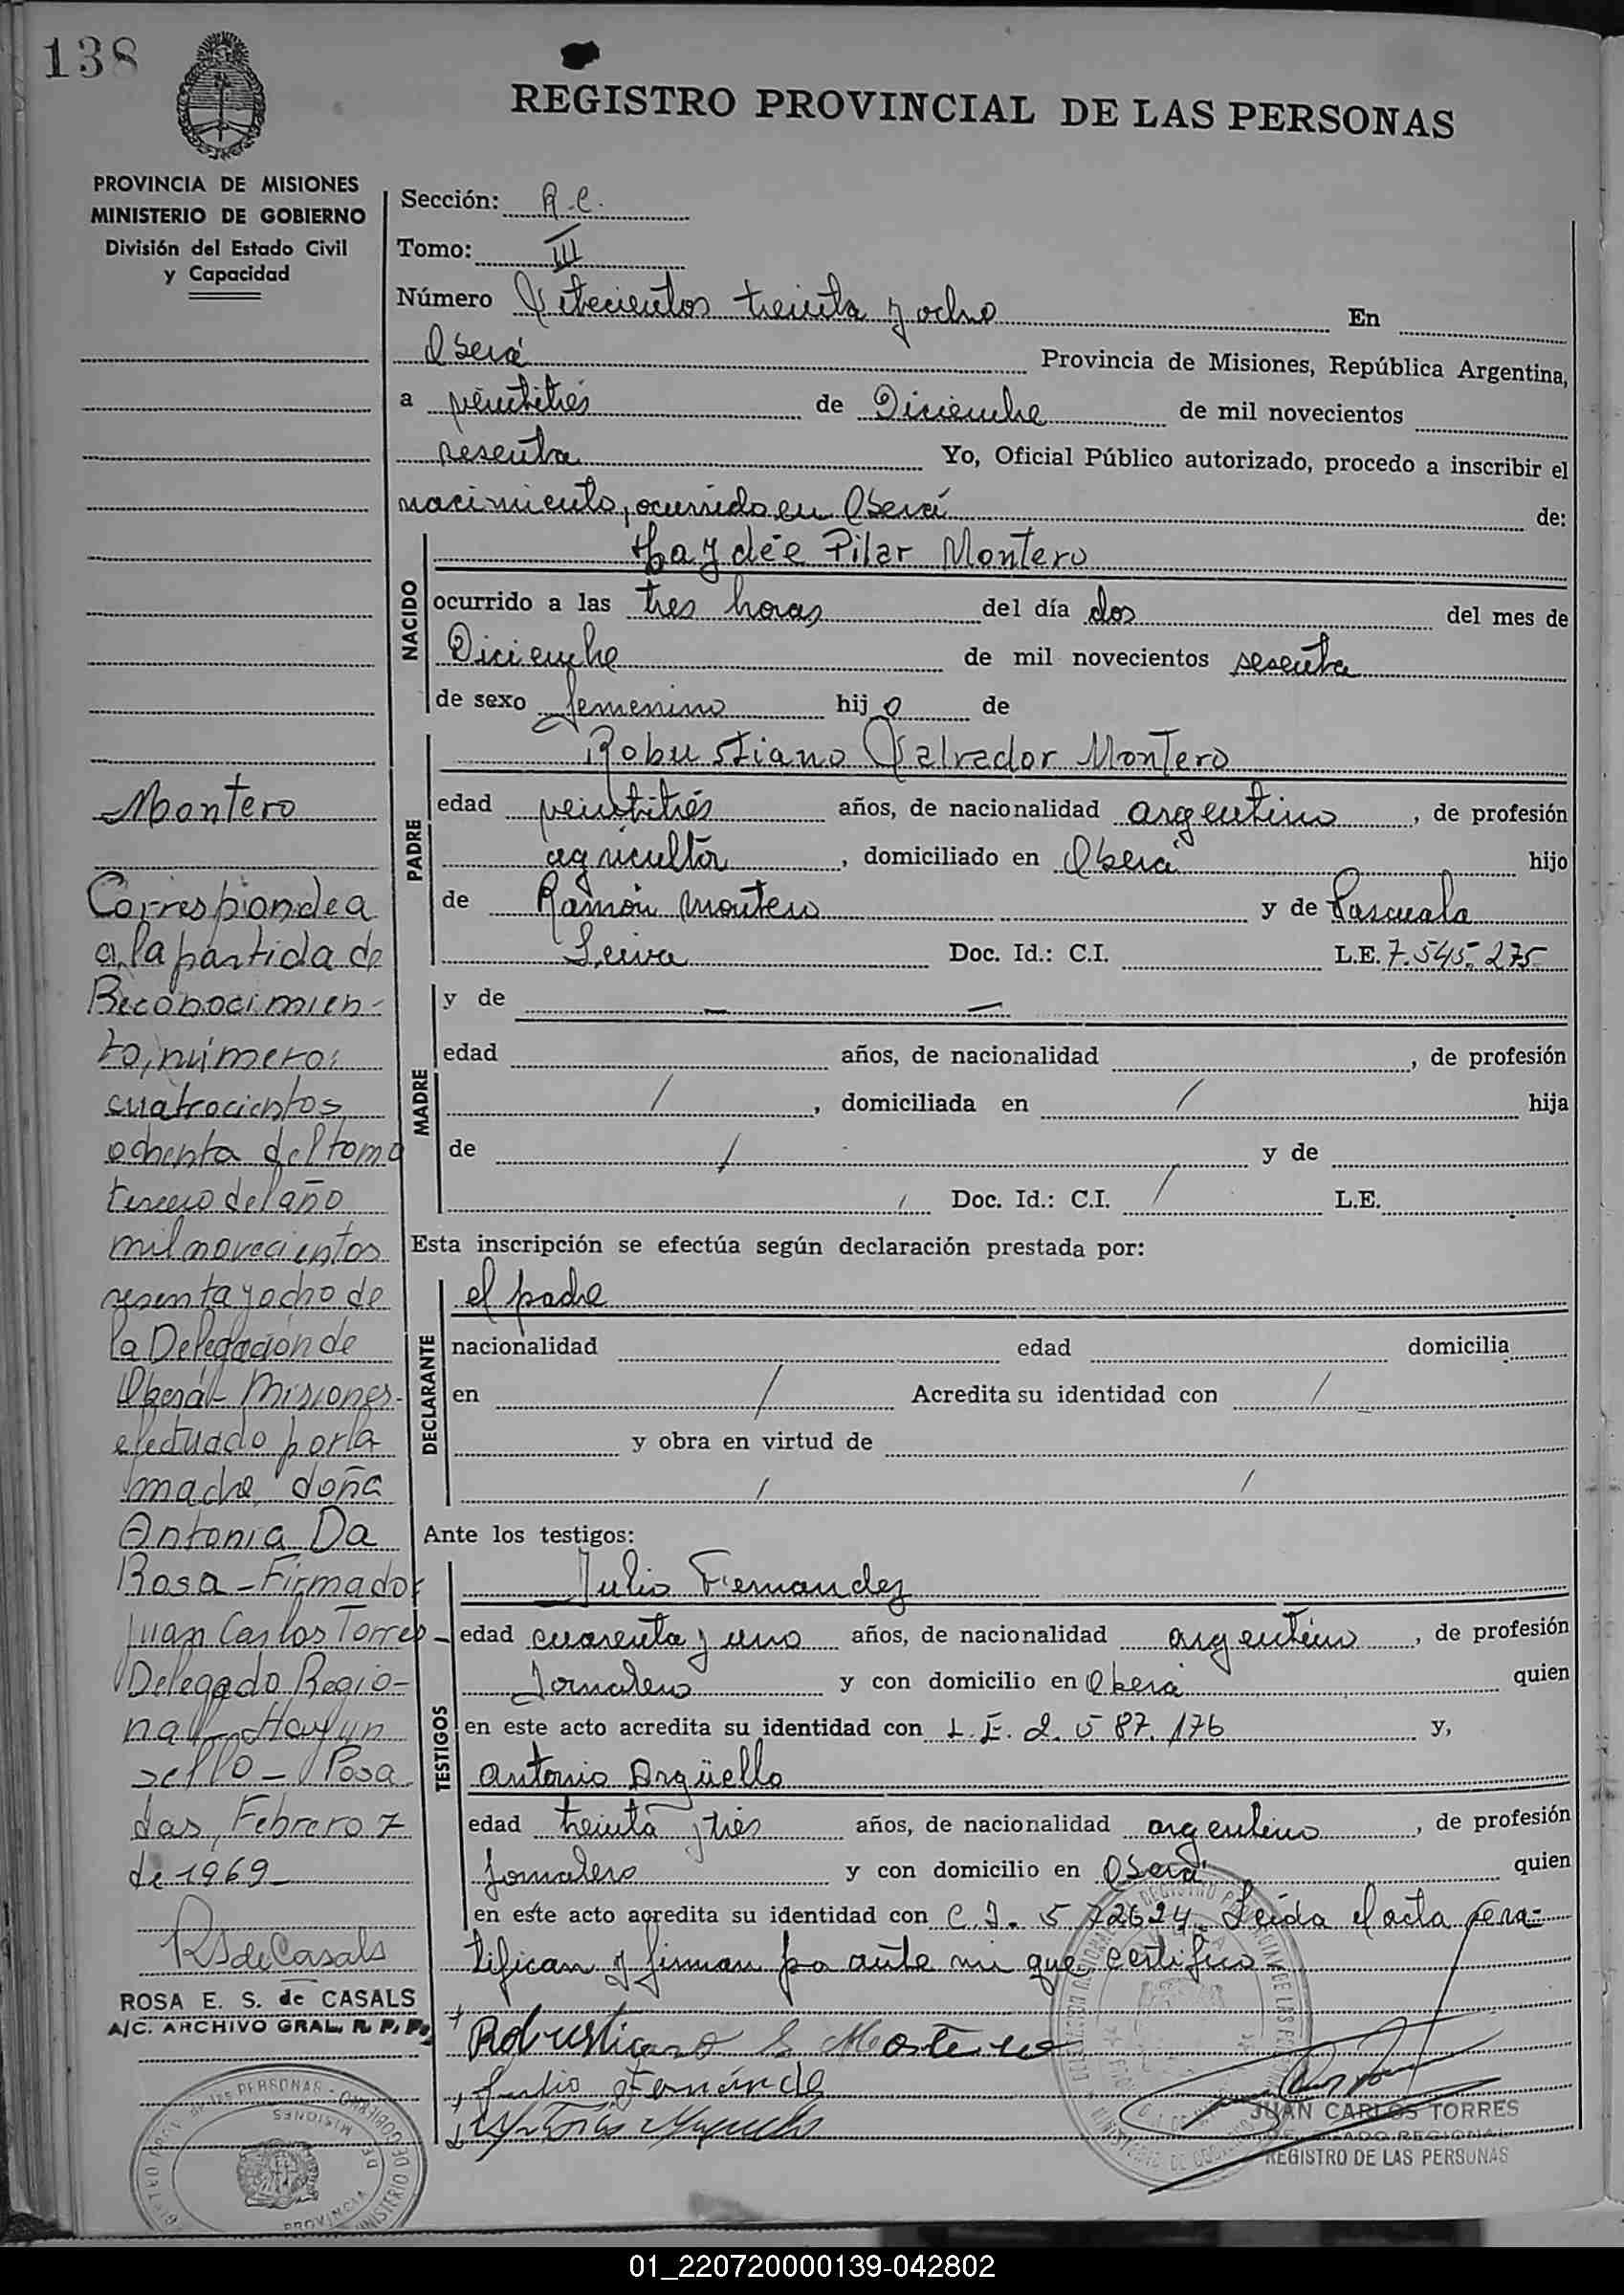 138
REGISTRO PROVINCIAL DE LAS PERSONAS
PROVINCIA DE MISIONES
MINISTERIO DE GOBIERNO
División del Estado Civil
y Capacidad
Sección: R.C.
Tomo: III
Número Setecientos treinta y ocho En
Oberá Provincia de Misiones, República Argentina,
a veintitrés de Diciembre de mil novecientos
sesenta Yo, Oficial Público autorizado, procedo a inscribir el
nacimiento, ocurrido en Oberá de:
NACIDO
Haydée Pilar Montero
ocurrido a las tres horas del día dos del mes de
Diciembre de mil novecientos sesenta
de sexo femenino hijo de
PADRE
Robustiano Salvador Montero
edad veintitrés años, de nacionalidad argentino, de profesión
agricultor, domiciliado en Oberá hijo
de Ramón Montero y de Pascuala
Leiva Doc. Id.: C.I. L.E. 7.545.275
MADRE
y de — —
edad años, de nacionalidad , de profesión
/ , domiciliada en / hija
de / y de
/ Doc. Id.: C.I. / L.E.
Esta inscripción se efectúa según declaración prestada por:
DECLARANTE
el padre
nacionalidad edad domicilia
en / Acredita su identidad con /
y obra en virtud de
/ /
Ante los testigos:
TESTIGOS
Julio Fernandez
edad cuarenta y uno años, de nacionalidad argentino, de profesión
Jornalero y con domicilio en Oberá quien
en este acto acredita su identidad con L.E. 2.587.176 y,
Antonio Argüello
edad treinta y tres años, de nacionalidad argentino, de profesión
Jornalero y con domicilio en Oberá quien
en este acto acredita su identidad con C.I. 572624. Leida el acta la ra-
tifican y firman por ante mi que certifico
Robustiano S Montero
Julio Fernández
JUAN CARLOS TORRES
DELEGADO REGIONAL
REGISTRO DE LAS PERSONAS
Montero
Corresponde a
a la partida de
Reconocimien-
to, número:
cuatrocientos
ochenta del tomo
tercero del año
mil novecientos
sesenta y ocho de
la Delegación de
Oberá - Misiones-
efectuado por la
madre doña
Antonia Da
Rosa - Firmado:
Juan Carlos Torres -
Delegado Regio-
nal - Hay un
sello - Posa
das, Febrero 7
de 1969 -
RS de Casals
ROSA E. S. de CASALS
A/C. ARCHIVO GRAL. R. P. P.
01_220720000139-042802